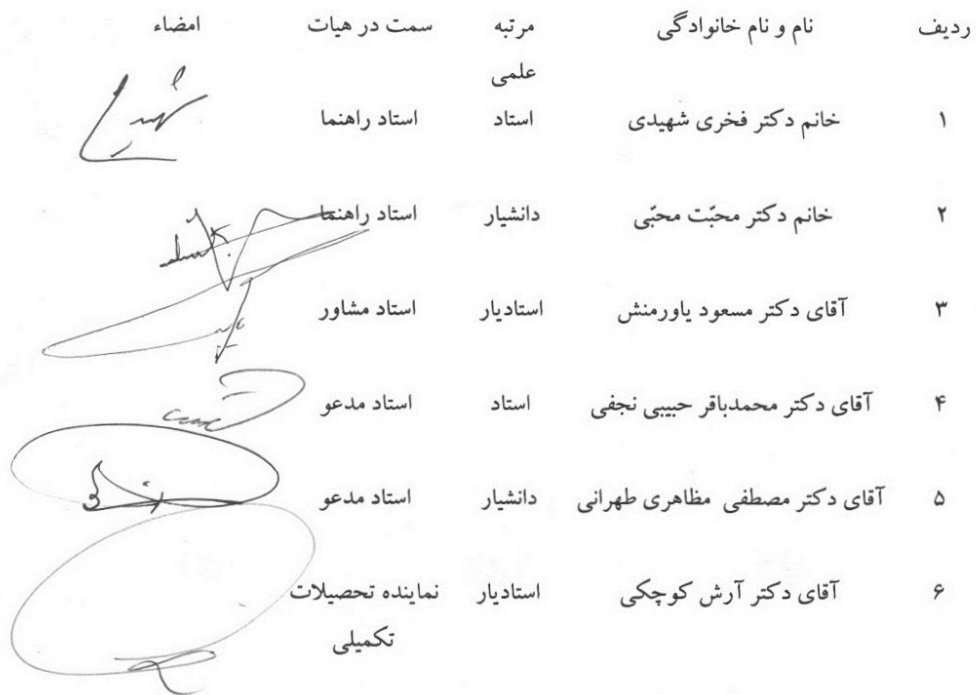 ردیف نام و نام خانوادگی مرتبه علمی سمت در هیات امضاء
۱ خانم دکتر فخری شهیدی استاد استاد راهنما
۲ خانم دکتر محبّت محبّی دانشیار استاد راهنما
۳ آقای دکتر مسعود یاورمنش استادیار استاد مشاور
۴ آقای دکتر محمدباقر حبیبی نجفی استاد استاد مدعو
۵ آقای دکتر مصطفی مظاهری طهرانی دانشیار استاد مدعو
۶ آقای دکتر آرش کوچکی استادیار نماینده تحصیلات
تکمیلی